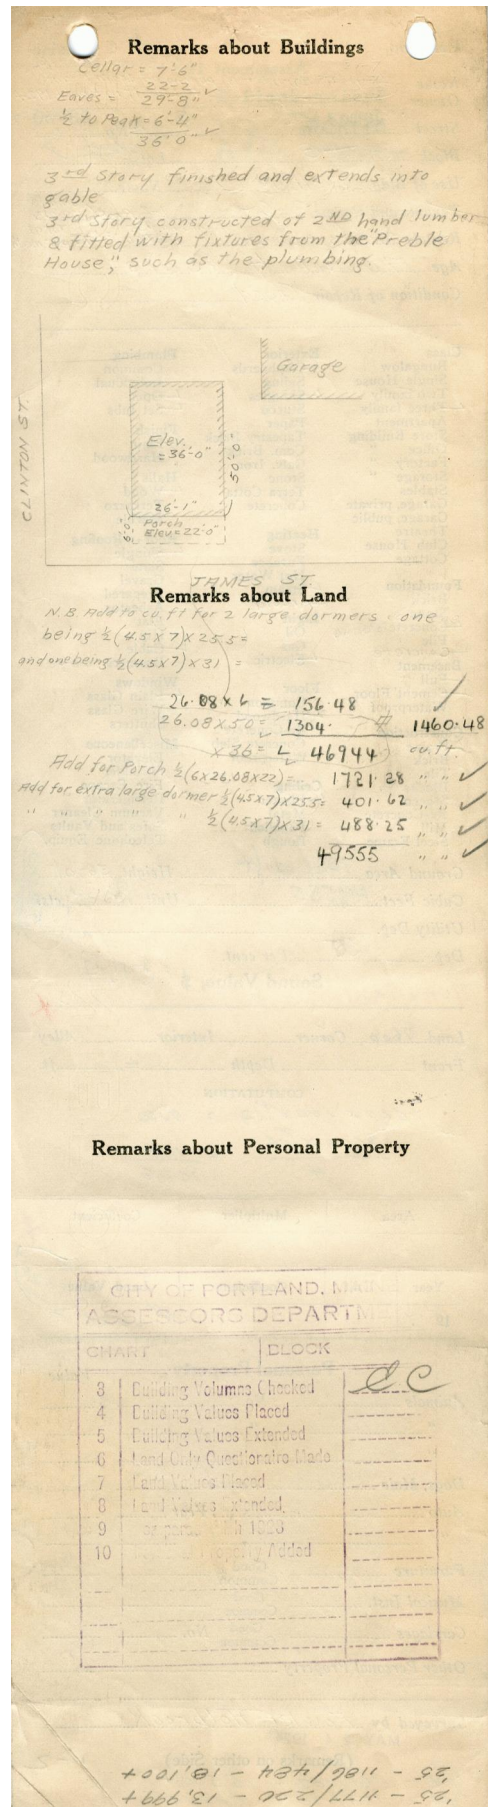 Remarks about Buildings
Cellar = 7'-6"
22-2
Eaves = 29'-8" ✓
½ to Peak = 6'-4"
36'0" ✓
3rd Story finished and extends into
gable
3rd Story constructed of 2ND hand lumber
& fitted with fixtures from the "Preble
House", such as the plumbing.
CLINTON ST.
Garage
Elev.
= 36'-0"
50'-0"
26'-1"
6'-0"
Porch
Elev = 22'-0"
JAMES ST.
Remarks about Land
N.B. Add to cu. ft for 2 large dormers one
being ½(4.5x7)x25.5=
and one being ½(4.5x7)x31 =
26.08 x 6 = 156.48 ✓
26.08x50= 1304. 1460.48
x 36 = 46944 cu. ft.
Add for Porch ½(6x26.08x22)= 1721.28 " " ✓
Add for extra large dormer ½(4.5x7)x25.5= 401.62 " " ✓
" " " " " ½(4.5x7)x31 = 488.25 " " ✓
49555 " " ✓
Remarks about Personal Property
CITY OF PORTLAND, MAINE
ASSESSORS DEPARTM
CHART BLOCK
3 Building Volumes Checked CC
4 Building Values Placed
5 Building Values Extended
6 Land Only Questionaire Made
7 Land Values Placed
8 Land Values Extended
9 1926
10 Added
'25 - 1177/226 - 13,999+
'25 - 1186/484 - 18,100+